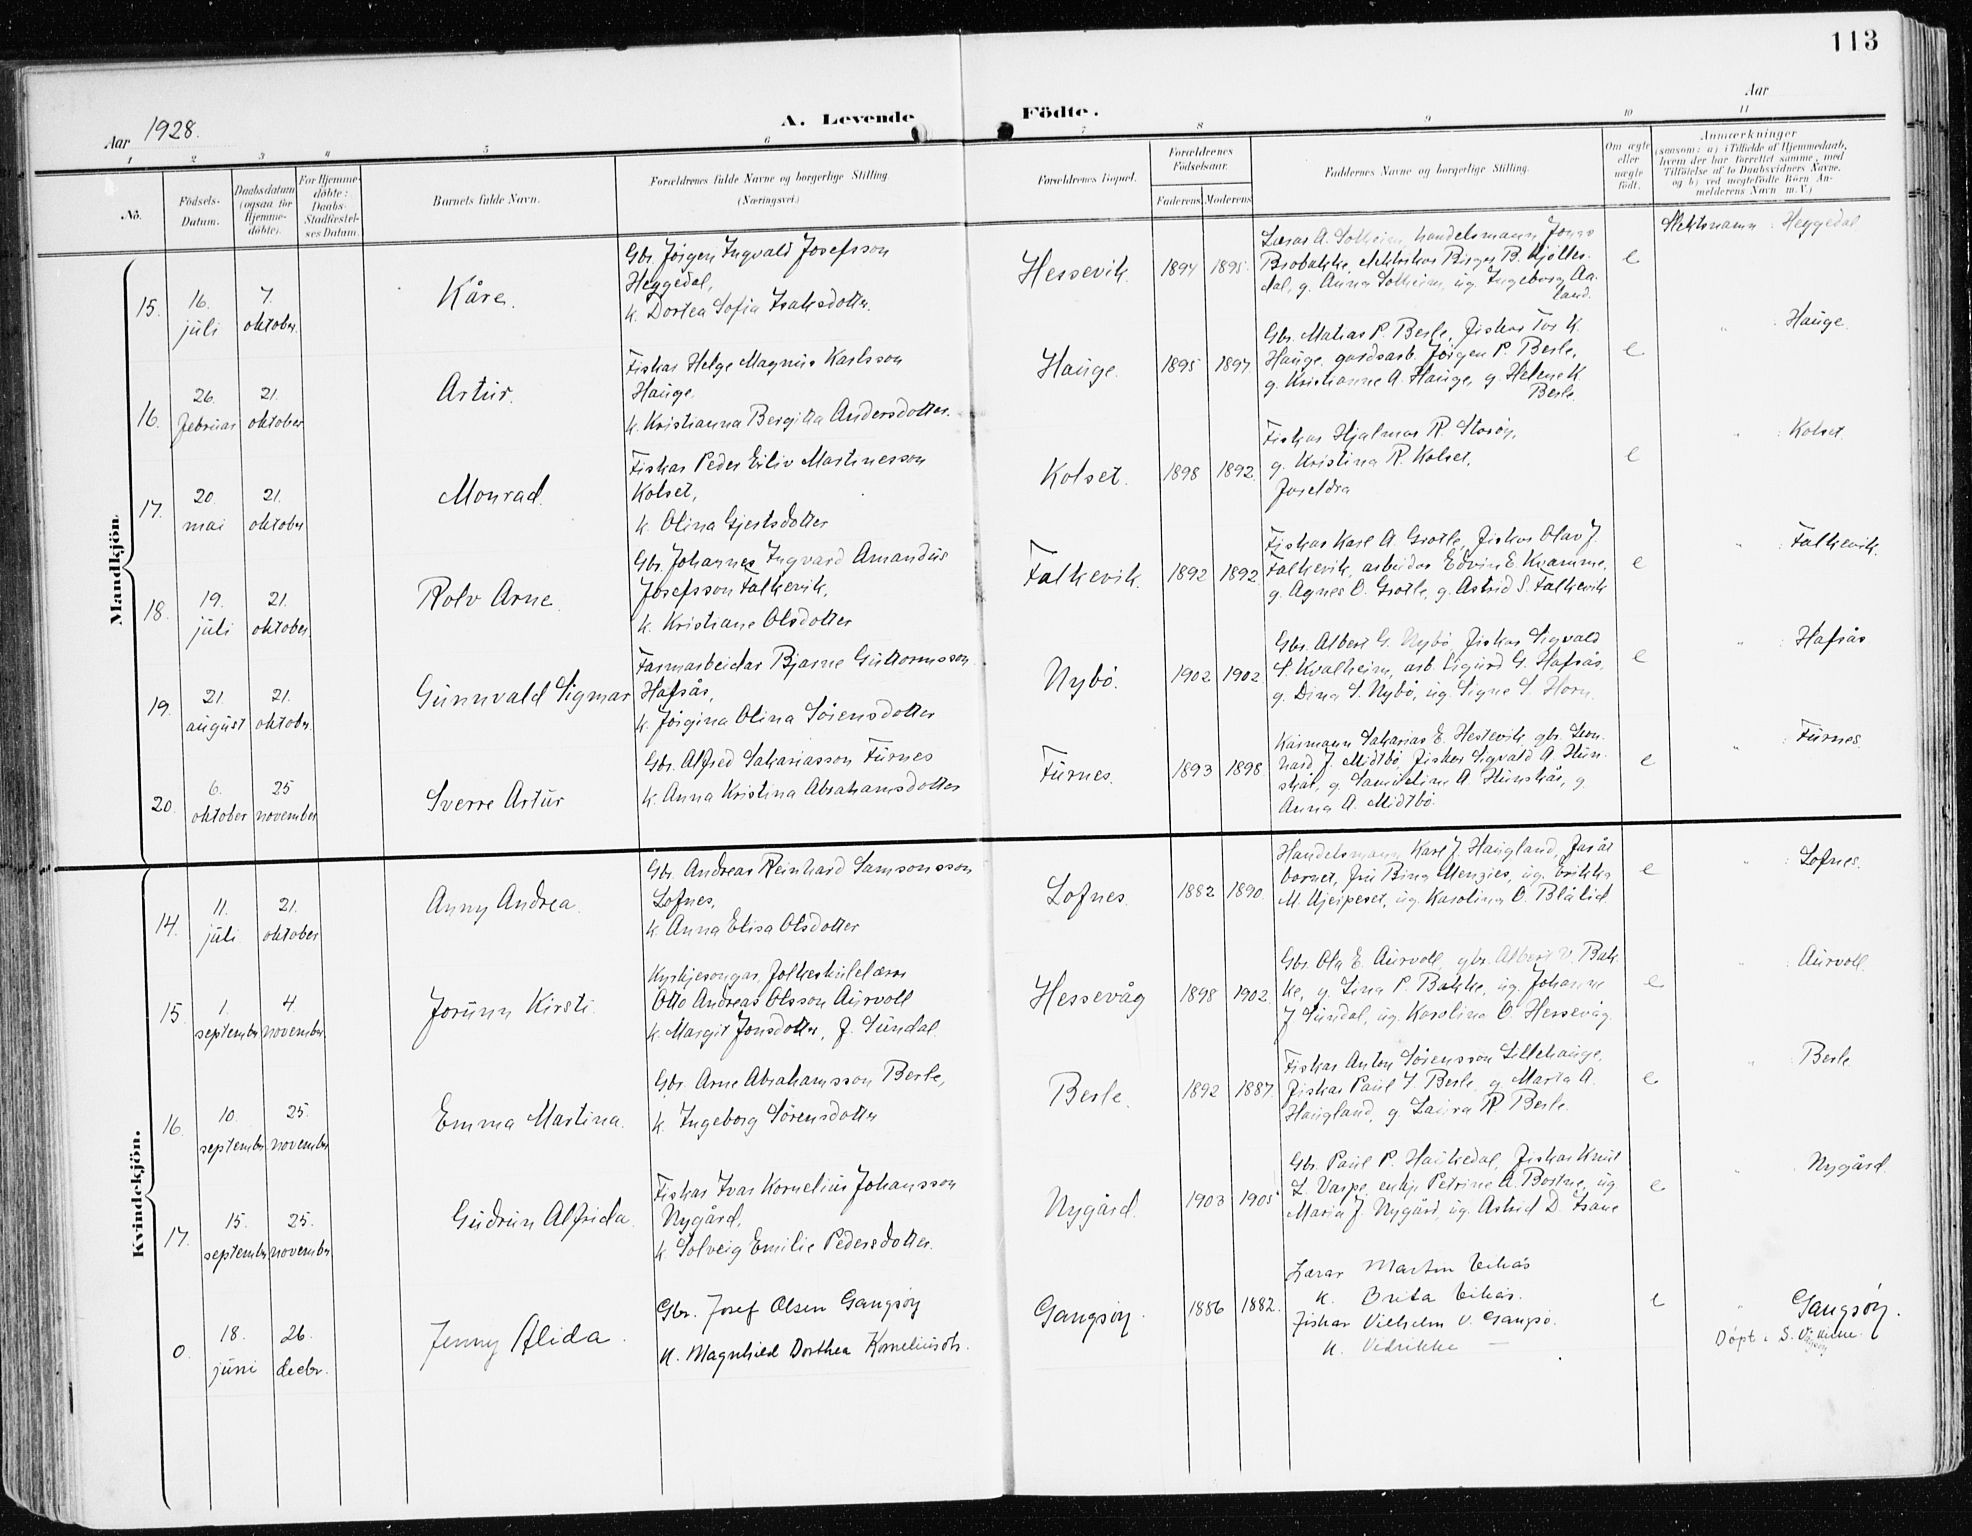 113
Aar 1928.
A. Levende Födte.
Aar
1 2 3 4 5 6 7 8 9 10 11
No.
Födsels-
Datum.
Daabsdatum
(ogsaa for
Hjemme-
döbte).
For Hjemme-
döbte:
Daabs-
Stadfæstel-
ses Datum.
Barnets fulde Navn.
Forældrenes fulde Navne og borgerlige Stilling.
(Næringsvei.)
Forældrenes Bopæl.
Forældrenes
Födselsaar.
Faderens Moderens
Faddernes Navne og borgerlige Stilling.
Om ægte
eller
uægte
födt.
Anmærkninger
(saasom: a) i Tilfælde af Hjemmedaab,
hvem der har forrettet samme, med
Tilföielse af to Daabsvidners Navne.
og b) ved uægtefödte Börn An-
melderens Navn m. V.)
Mandkjön.
15.
16.
juli
7.
oktober.
Kåre.
Gbr. Jørgen Ingvald Josefsson
Heggedal,
k. Dortea Sofia Isaksdotter.
Hessevik.
1894 1895.
Lærar A. Solheim, handelsmann Jonas
Brobakke, elektrikar Birger B. Kjölles-
dal, g. Anna Solheim, ug. Ingeborg Aa-
land.
e
Slektsnamn: Heggedal
16.
26.
februar
21.
oktober
Artur.
Fiskar Helge Magnus Karlsson
Hauge,
k. Kristianna Bergitta Andersdotter.
Hauge.
1895 1897.
Gbr. Matias P. Berle, fiskar Tor K.
Hauge, gardsarb. Jørgen P. Berle,
g. Kristianne A. Hauge, g. Helene K.
Berle.
e
" : Hauge.
17.
20
mai
21.
oktober
Monrad.
Fiskar Peder Eiliv Martinusson
Kolset,
k. Olina Gjertsdotter
Kolset.
1898 1892.
Fiskar Hjalmar R. Storöy,
g. Kristina R. Kolset,
foreldra
e
" : Kolset.
18.
19.
juli
21.
oktober.
Rolv Arne.
Gbr. Johannes Ingvard Amandus
Josefsson Falkevik,
k. Kristiane Olsdotter
Falkevik.
1892 1892
Fiskar Karl A. Grotle, fiskar Olav J.
Falkevik, arbeidar Edvin E. Kvamme,
g. Agnes O. Grotle, g. Astrid S. Falkevik
e
" : Falkevik.
19.
21.
august
21.
oktober.
Gunnvald Sigmar
Farmarbeidar Bjarne Guttormsson
Hafsås,
k. Jørgina Olina Sørensdotter
Nybö.
1902 1902
Gbr. Albert G. Nybö, fiskar Sigvald
S. Kvalheim, arb. Sigurd G. Hafsås,
g. Dina S. Nybö, ug. Signe S. Horn.
e
" : Hafsås
20.
6.
oktober
25
november
Sverre Artur
Gbr. Alfred Sakariasson Furnes
k. Anna Kristina Abrahamsdotter
Furnes.
1893 1898
Kårmann Sakarias E. Hestevik, gbr. Leon-
hard J. Midtbö, fiskar Sigvald A. Hun-
skår, g. Samueline A. Hunskår, g.
Anna A. Midtbö.
e
" : Furnes.
Kvindekjön.
14.
11.
juli
21.
oktober
Anny Andrea.
Gbr. Andreas Reinhard Samsonsson
Lofnes,
k. Anna Elisa Olsdotter
Lofnes.
1882 1890.
Handelsmann Karl J. Haugland, far åt
barnet, fru Rina Menzies, ug. Erikka
M. Gjeipeset, ug. Karolina O. Blålid.
e
" : Lofnes.
15.
1.
september
4.
november.
Jorunn Kirsti.
Kyrkjesongar, folkeskulelærar
Otto Andreas Olsson Aurvoll
k. Margit Jonsdotter, f. Sundal.
Hessevåg
1898 1902.
Gbr. Ola E. Aurvoll, gbr. Albert V. Bak-
ke, g. Lina P. Bakke, ug. Johanne
J. Sundal, ug. Karolina O. Hessevåg.
e
" : Aurvoll.
16.
10.
september
25.
november
Emma Martina.
Gbr. Arne Abrahamsson Berle,
k. Ingeborg Sørensdotter
Berle.
1892 1887.
Fiskar Anton Sørensson Lillehauge,
fiskar Paul I. Berle, g. Marta A.
Haugland, g. Laura R. Berle.
e
" : Berle.
17.
15.
september
25.
november.
Gudrun Alfrida.
Fiskar Ivar Kornelius Johansson
Nygård,
k. Solveig Emilie Pedersdotter.
Nygård.
1903 1905
Gbr. Paul P. Haukedal, fiskar Knut
L. Varpe, enkje Petrine A. Bortne, ug.
Maria J. Nygård, ug. Astrid D. Isane
e
" : Nygård.
0.
18.
juni
26.
decbr.
Jenny Alida.
Gbr. Josef Olsen Gangsöy
k. Magnhild Dorthea Korneliusdtr.
Gangsöy.
1886 1882.
Lærar Martin Vikås
k. Brita Vikås.
fiskar Vilhelm V. Gangsö.
k. Vedrikke —
e
" Gangsöy.
Döpt i S. Vågsöy kirke.